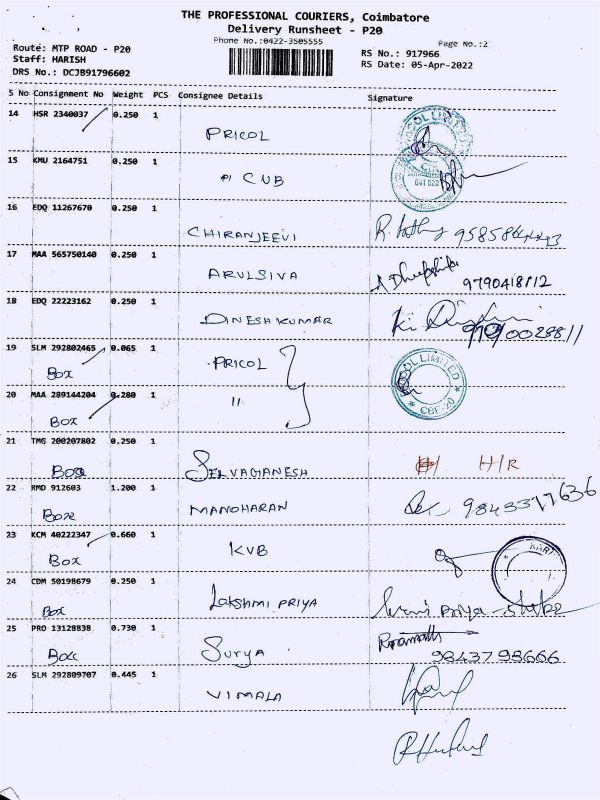 THE PROFESSIONAL COURIERS, Coimbatore
Delivery Runsheet - P20
Phone No.:0422-3505555
Page No.:2
Route: MTP ROAD - P20
Staff: HARISH
DRS No.: DCJB91796602
RS No.: 917966
RS Date: 05-Apr-2022
S No Consignment No Weight PCS Consignee Details Signature
14 HSR 2340037 0.250 1
PRICOL
15 KMU 2164751 0.250 1
CUB
16 EDQ 11267670 0.250 1
CHIRANJEEVI
17 MAA 565750140 0.250 1
ARULSIVA 9790418112
18 EDQ 22223162 0.250 1
DINESH KUMAR
19 SLM 292802465 0.065 1
Box PRICOL
20 MAA 289144204 0.280 1
Box "
21 TMG 200207802 0.250 1
Box SELVAGANESH H/R
22 RMD 912603 1.200 1
Box MANOHARAN 9843377636
23 KCM 40222347 0.660 1
Box KVB
24 CDM 50198679 0.250 1
Box LAKSHMI PRIYA
25 PRO 13128838 0.730 1
Box SURYA 9843798666
26 SLM 292809707 0.445 1
VIMALA